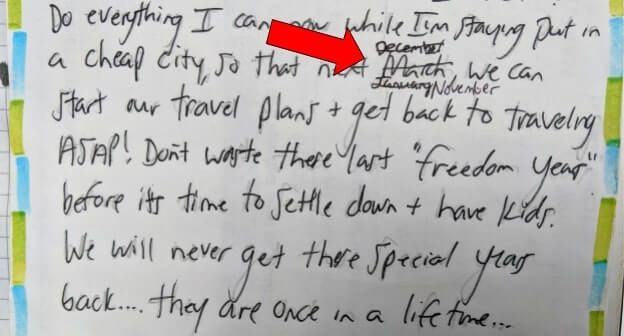 Do everything I can now while I'm staying put in
December
a cheap city, so that next March, we can
January November
start our travel plans + get back to traveling
ASAP! Don't waste these last "freedom years"
before it's time to settle down + have kids.
We will never get these special years
back.... they are once in a lifetime...